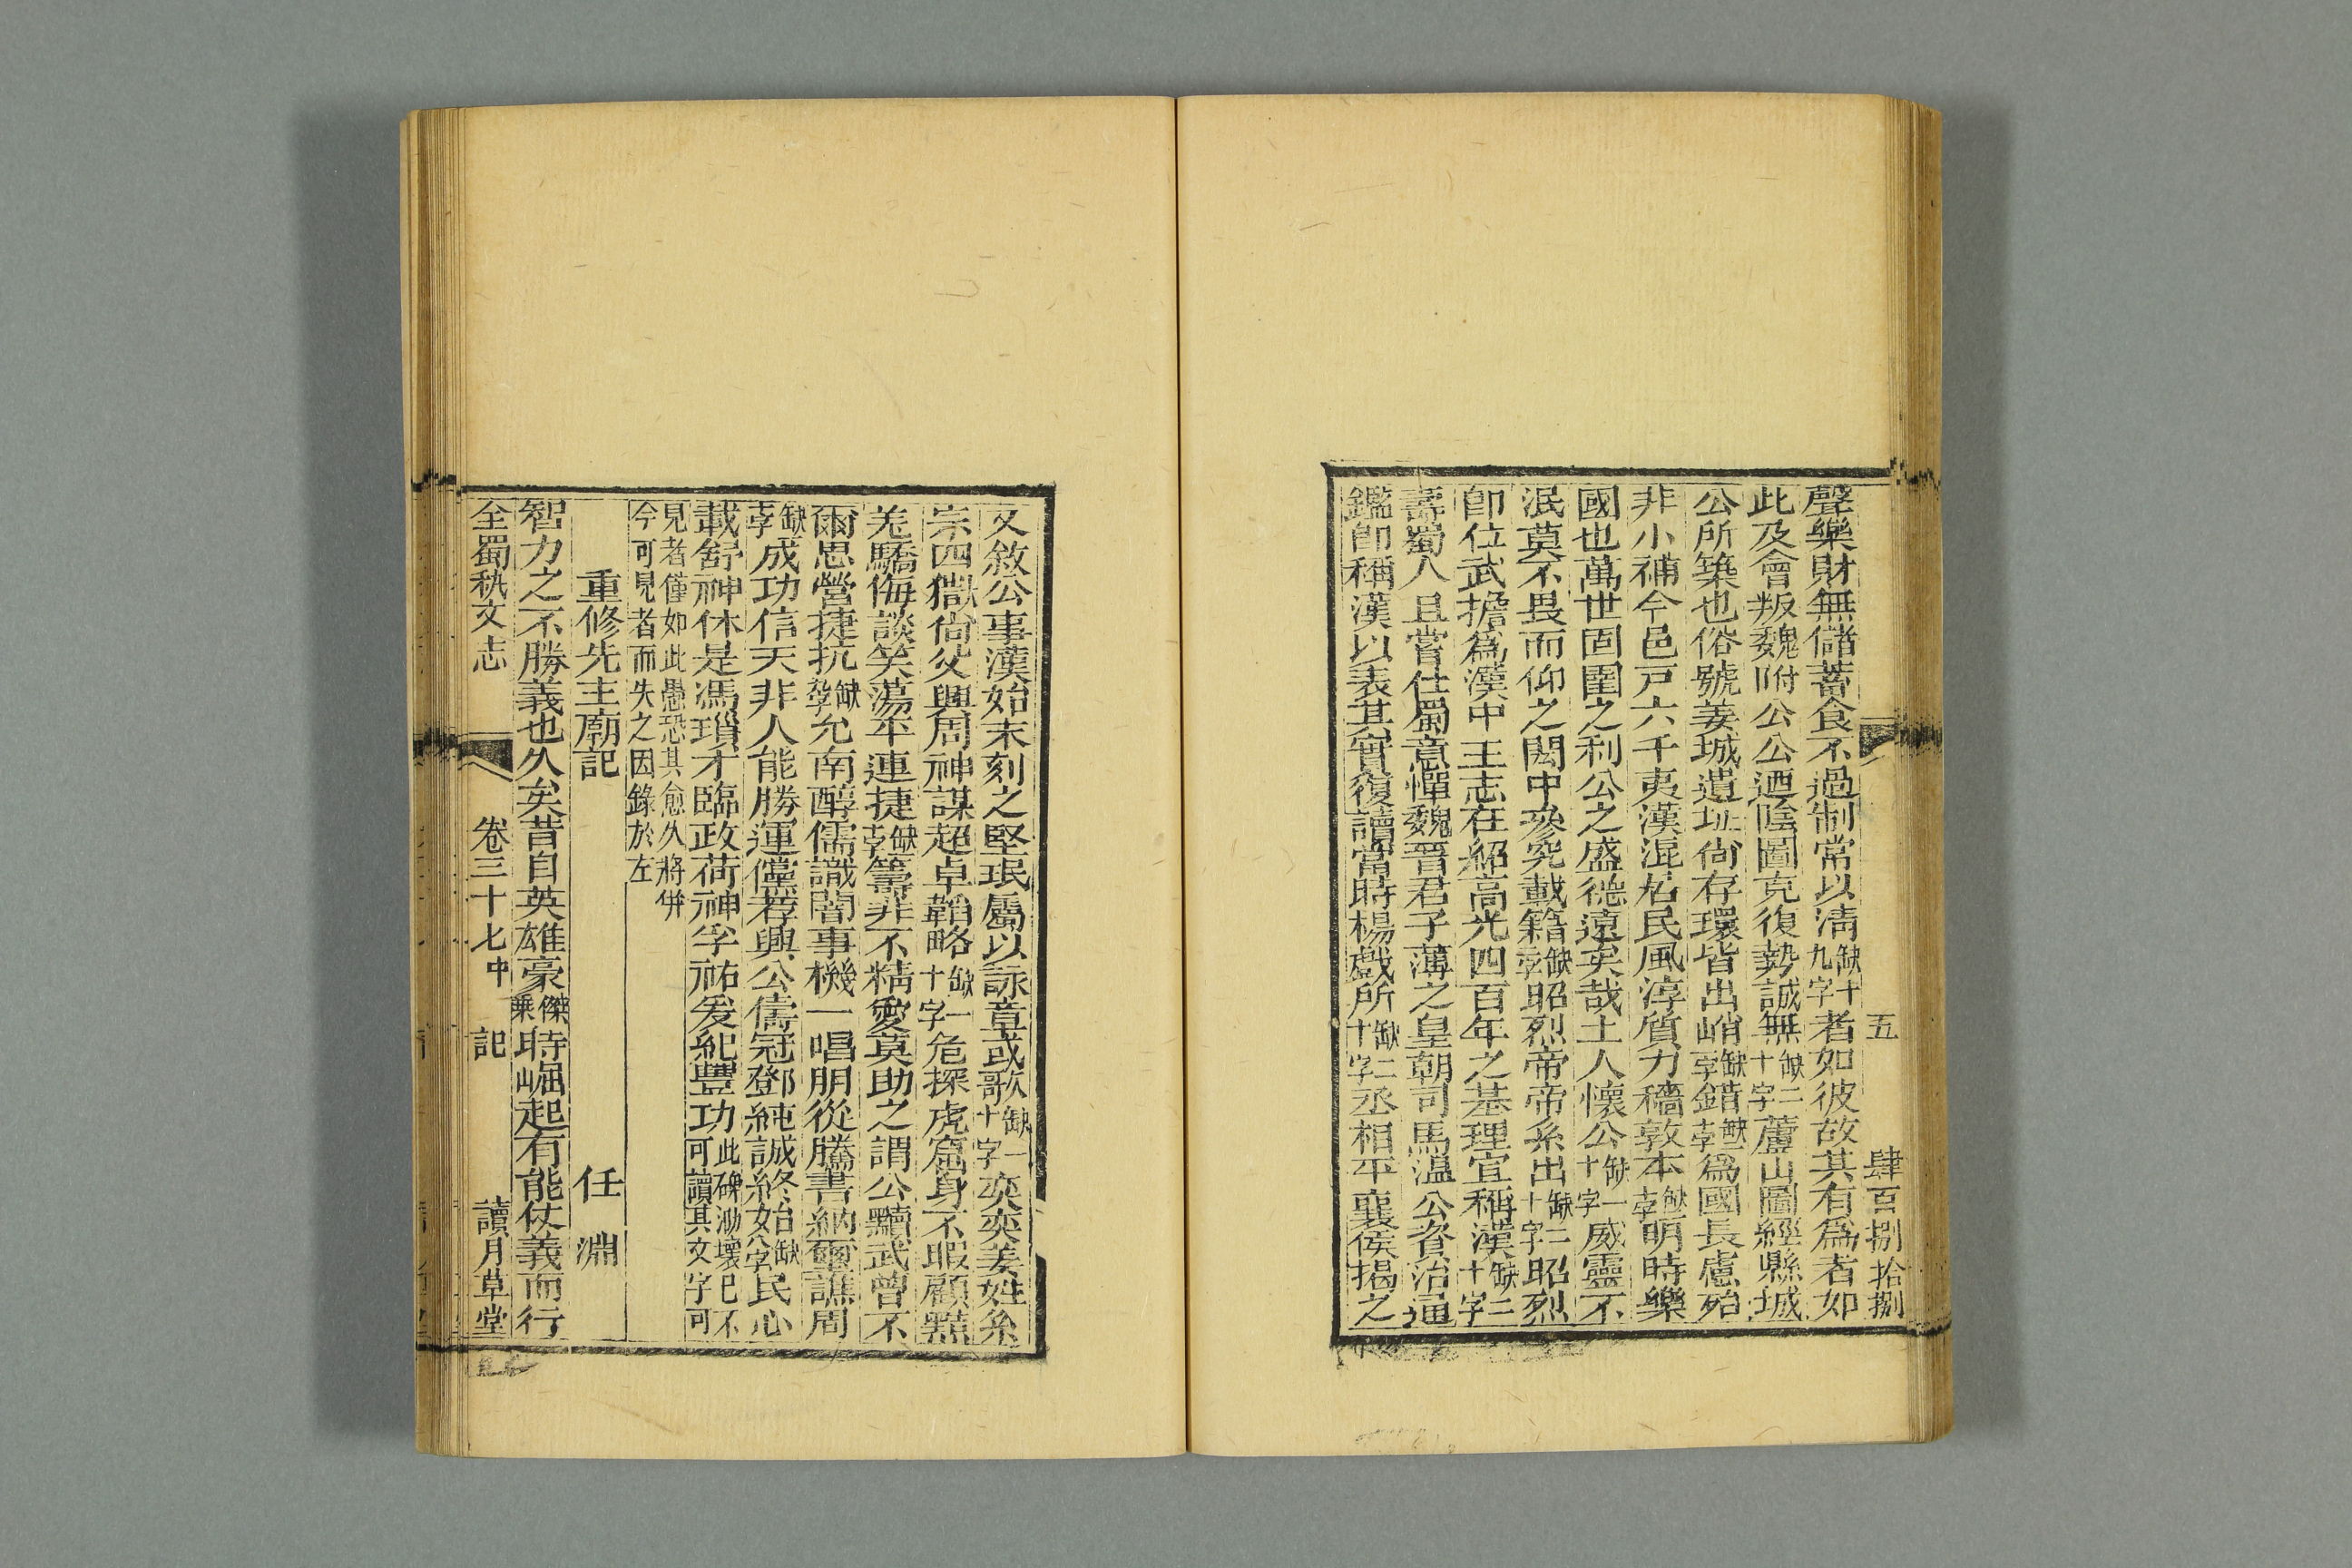 五　肆百捌拾捌
聲樂財無儲蓄食不過制常以清缺十九字者如彼故其有爲者如
此及會叛魏附公公迺陰圖克復勢誠無缺二十字蘆山圖經縣城
公所築也俗號姜城遺址尙存環皆出峭缺字錯缺字爲國長慮殆
非小補今邑戸六千夷漢混居民風淳質力穡敦本缺字明時樂
國也萬世固圉之利公之盛德遠矣哉土人懷公缺一十字威靈不
泯莫不畏而仰之閎中叅究載籍缺字昭烈帝帝系出缺二十字昭烈
卽位武擔爲漢中王志在紹高光四百年之基理宜稱漢缺二十字
壽蜀人且嘗仕蜀意憚魏晋君子薄之皇朝司馬溫公資治通
鑑卽稱漢以表其實復讀當時楊戲所缺二十字丞相平襄侯揭之
又敘公事漢始末刻之堅珉屬以詠章或歌缺一十字奕奕姜姓系
宗四嶽尙父興周神謀超卓韜略缺一十字危探虎窟身不暇顧黠
羌驕侮談笑蕩平連捷缺字籌非不精愛莫助之謂公黷武曾不
爾思營捷抗缺字允南醇儒識闇事機一唱朋從騰書納璽譙周
缺字成功信天非人能勝運儻荐興公儔冠鄧純誠終始缺六字民心
載舒神休是馮瑣才臨政荷神孚祐爰紀豐功此碑泐壞已不可讀其文字可
見者僅如此愚恐其愈久將併今可見者而失之因錄於左
重修先主廟記　任淵
智力之不勝義也久矣昔自英雄豪傑乗時崛起有能仗義而行
全蜀秇文志　卷三十七中　記　讀月草堂